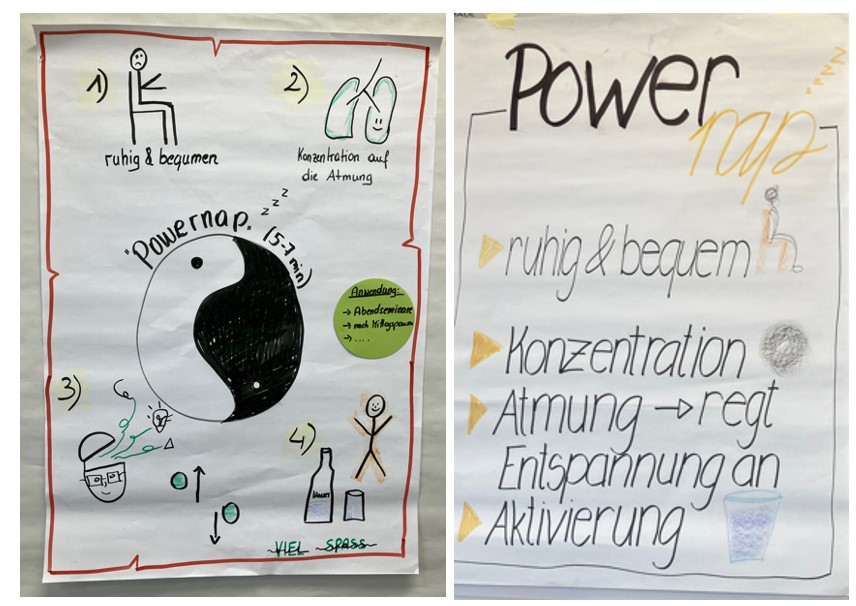 1)
ruhig & bequmen
2)
Konzentration auf
die Atmung
"Powernap" zzz
(5-7 min)
Anwendung:
→ Abendseminare
→ nach Mittagspausen
→ ....
3)
4)
VIEL SPASS
Power
nap zzzz
ruhig & bequem
Konzentration
Atmung → regt
Entspannung an
Aktivierung